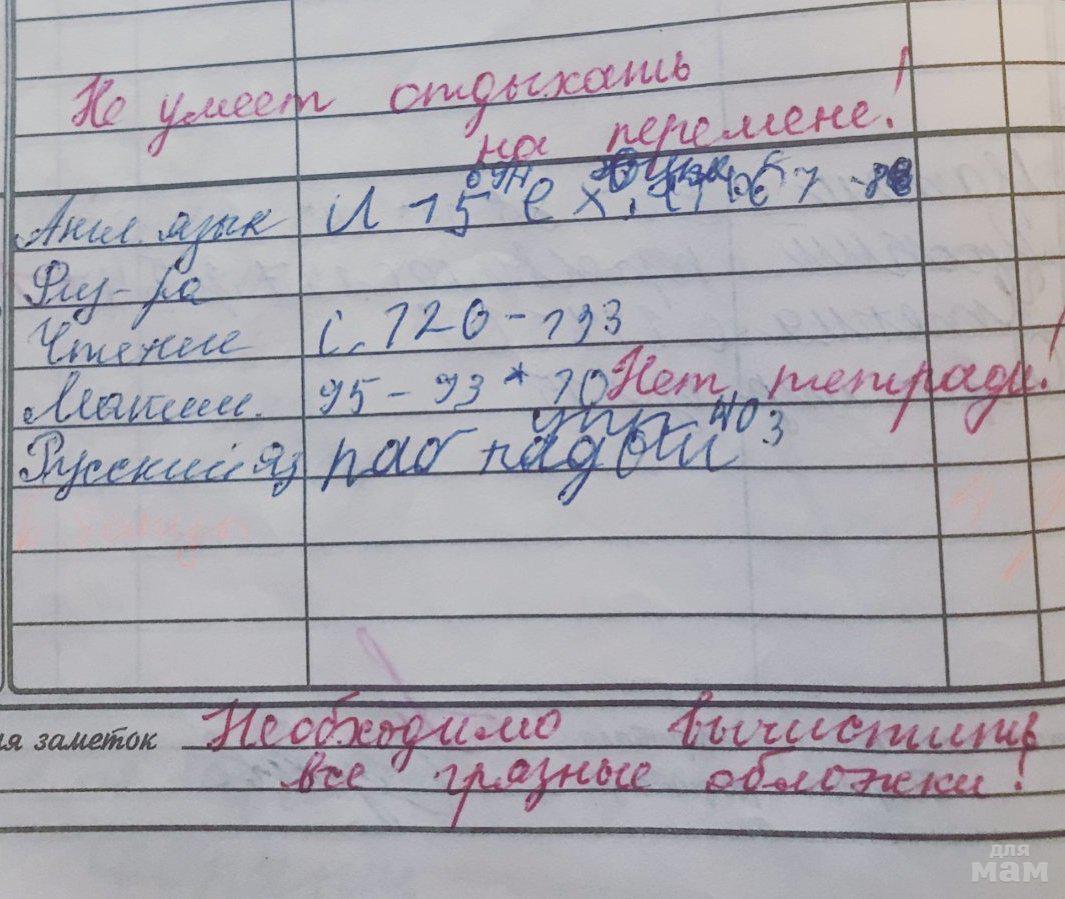 Не умеет отдыхать
на перемене!
Англ. язык
Физ-ра
Чтение с. 120-193
Матем. 95-93*10 Нет тетради!
упр 403
Русский яз раб
для заметок Необходимо вычистить
все грязные обложки!
для
мам